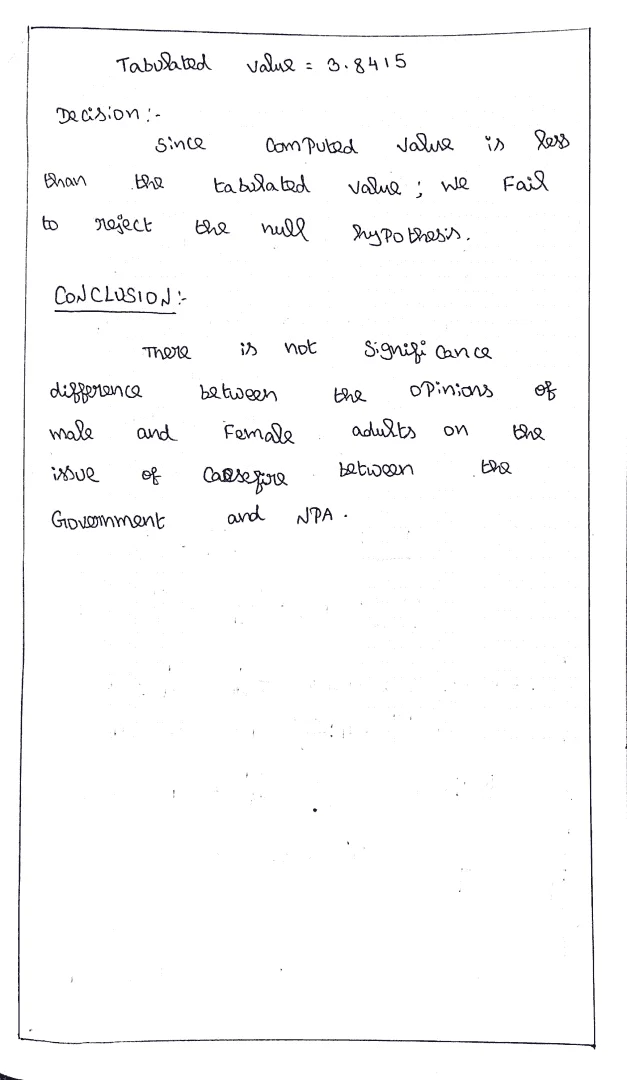 Tabulated value = 3.8415
Decision:-
Since Computed value is less
than the tabulated value; we Fail
to reject the null hypothesis.
CONCLUSION:-
There is not Significance
difference between the opinions of
male and Female adults on the
issue of between the
Government and NPA.